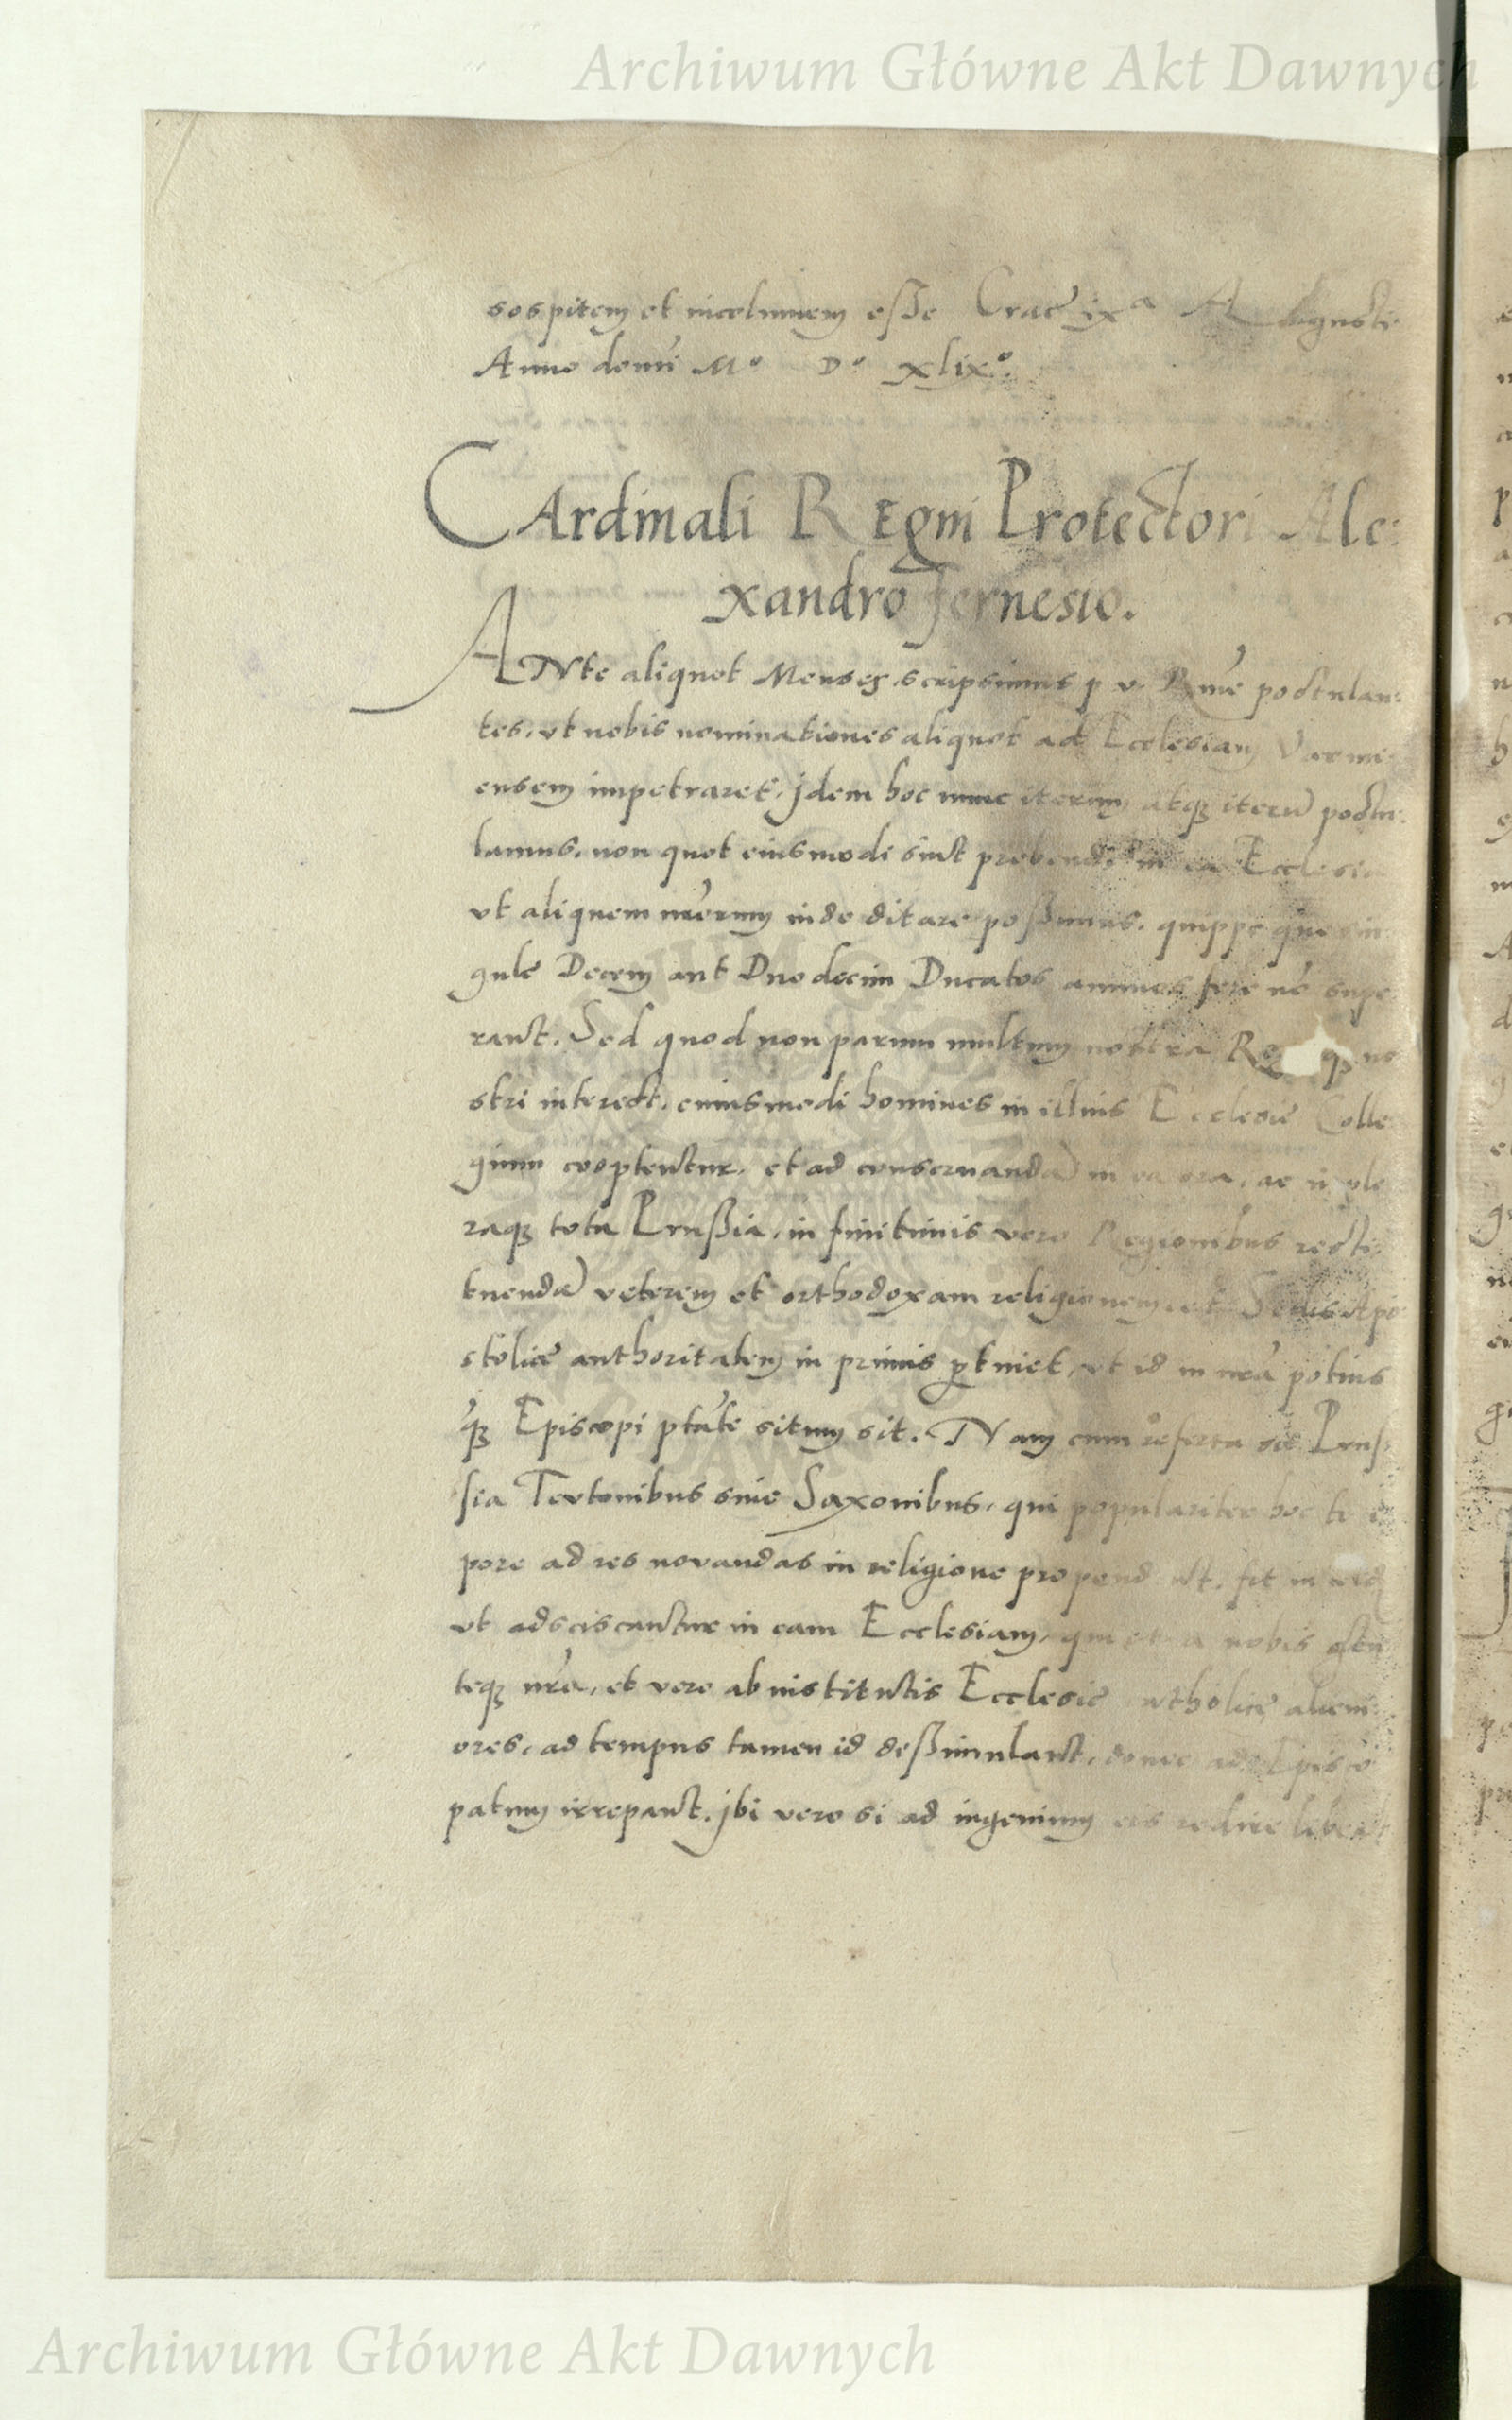 Archiwum Główne Akt Dawnych
sospitem et incolumem esse Crac ixᵃ Augusti
Anno domi Mº Dº xlixº.
CArdinali REgni Protectori Ale:
xandro fernesio.
ANte aliquot Menses scripsimus p v. Rme postulan:
tes, vt nobis nominationes aliquot ad Ecclesiam Varmi
ensem impetraret, jdem hoc nunc iterum atqꝫ iterū postu:
lamus, non quot eiusmodi sint prebendę in ea Ecclesia
vt aliquem nrērum inde ditare possimus, quippe que sin:
gule Decem aut Duodecim Ducatos annuos fere nō supe
rant. Sed quod non parum multum nostra qꝫ no
stri interest, cuiusmodi homines in illius Ecclesie Colle
gium cooptentur, et ad conseruandā in ea ora, ac
raqꝫ tota Prussia, in finitimis vero Regionibus resti:
tuendā veterem et orthodoxam religionem, et Sedis Apo
stolice authoritatem in primis ꝑtinet, vt id in nrā potius
qꝫ Episcopi ptāte situm sit. Nam cum referta sit Prus:
sia Teutonibus siue Saxonibus, qui populariter hoc
pore ad res nouandas in religione propend nt, fit
vt adsciscantur in eam Ecclesiam, qui et a nobis
teqꝫ nrā, et vero ab institutis Ecclesie catholicę alieni
ores, ad tempus tamen id dessimulant, donec ad Episco
patum irrepant. jbi vero si ad ingenium eis redire libeat
Archiwum Główne Akt Dawnych